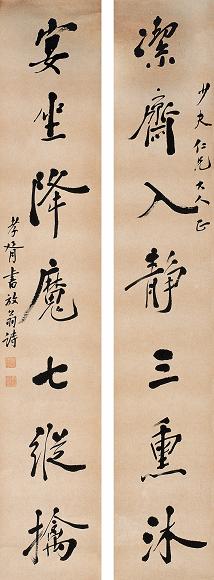 少夫仁兄大人正
潔齋入静三熏沐
宴坐降魔七縱擒
孝胥書放翁詩